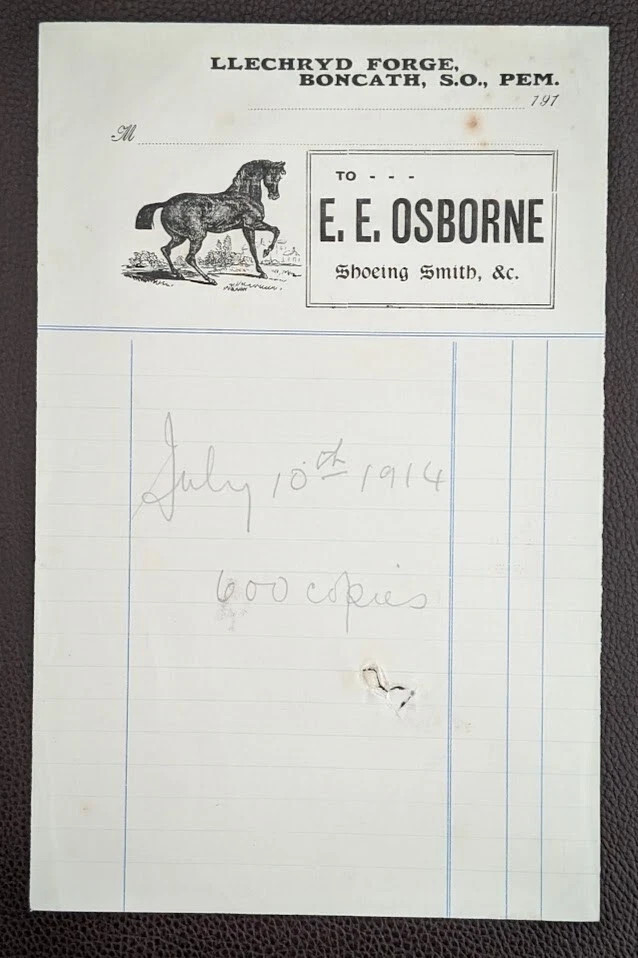 LLECHRYD FORGE,
BONCATH, S.O., PEM.
191
M
TO - - -
E. E. OSBORNE
Shoeing Smith, &c.
July 10th 1914
600 copies